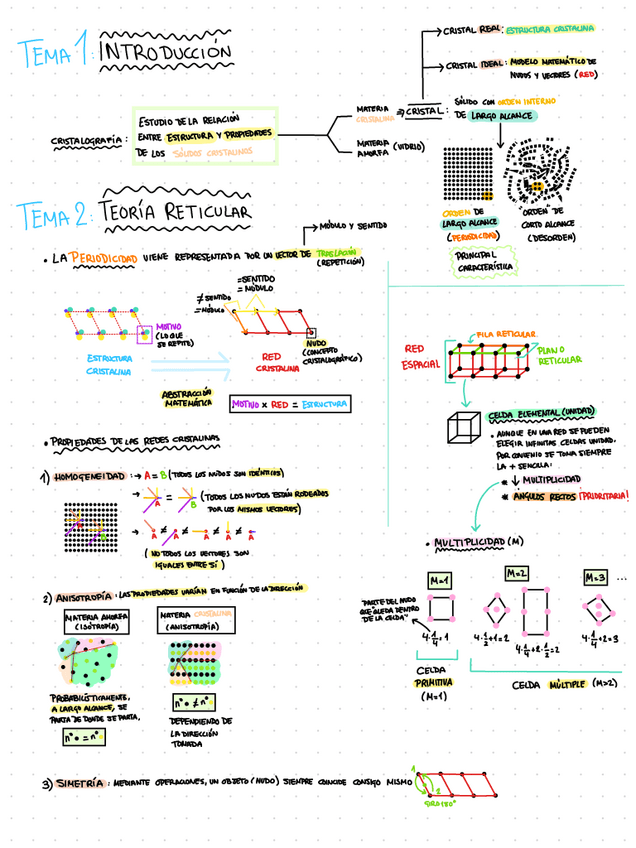 TEMA 1: INTRODUCCIÓN
CRISTALOGRAFÍA:
ESTUDIO DE LA RELACIÓN
ENTRE ESTRUCTURA Y PROPIEDADES
DE LOS SÓLIDOS CRISTALINOS
MATERIA
CRISTALINA
MATERIA
AMORFA (VIDRIO)
⇒ CRISTAL:
CRISTAL REAL: ESTRUCTURA CRISTALINA
CRISTAL IDEAL: MODELO MATEMÁTICO DE
NUDOS Y VECTORES (RED)
SÓLIDO CON ORDEN INTERNO
DE LARGO ALCANCE
ORDEN DE
LARGO ALCANCE
(PERIODICIDAD)
PRINCIPAL
CARACTERÍSTICA
"ORDEN" DE
CORTO ALCANCE
(DESORDEN)
TEMA 2: TEORÍA RETICULAR
MÓDULO Y SENTIDO
• LA PERIODICIDAD VIENE REPRESENTADA POR UN VECTOR DE TRASLACIÓN
(REPETICIÓN)
MOTIVO
(LO QUE
SE REPITE)
ESTRUCTURA
CRISTALINA
=SENTIDO
=MÓDULO
≠SENTIDO
=MÓDULO
NUDO
(CONCEPTO
CRISTALOGRÁFICO)
RED
CRISTALINA
ABSTRACCIÓN
MATEMÁTICA
MOTIVO x RED = ESTRUCTURA
FILA RETICULAR
RED
ESPACIAL
PLANO
RETICULAR
CELDA ELEMENTAL (UNIDAD)
• AUNQUE EN UNA RED SE PUEDEN
ELEGIR INFINITAS CELDAS UNIDAD,
POR CONVENIO SE TOMA SIEMPRE
LA + SENCILLA:
* ↓ MULTIPLICIDAD
* ÁNGULOS RECTOS ¡PRIORITARIA!
• MULTIPLICIDAD (M)
M=1
M=2
M=3
...
PARTE DEL NUDO
QUE QUEDA DENTRO
DE LA CELDA
4·1/4=1
4·1/4+1=2
4·1/4+2·1/2=2
4·1/4+2=3
CELDA
PRIMITIVA
(M=1)
CELDA MÚLTIPLE (M>2)
• PROPIEDADES DE LAS REDES CRISTALINAS
1) HOMOGENEIDAD: → A = B (TODOS LOS NUDOS SON IDÉNTICOS)
→ A = B (TODOS LOS NUDOS ESTÁN RODEADOS
POR LOS MISMOS VECTORES)
→ A ≠ A ≠ A ≠ A ≠ A
(NO TODOS LOS VECTORES SON
IGUALES ENTRE SÍ)
2) ANISOTROPÍA: LAS PROPIEDADES VARÍAN EN FUNCIÓN DE LA DIRECCIÓN
MATERIA AMORFA
(ISÓTROPA)
MATERIA CRISTALINA
(ANISOTROPÍA)
PROBABILÍSTICAMENTE,
A LARGO ALCANCE, SE
PARTA DE DONDE SE PARTA,
nº• = nº•
nº• ≠ nº•
DEPENDIENDO DE
LA DIRECCIÓN
TOMADA
3) SIMETRÍA: MEDIANTE OPERACIONES, UN OBJETO (NUDO) SIEMPRE COINCIDE CONSIGO MISMO
1
2
GIRO 180°